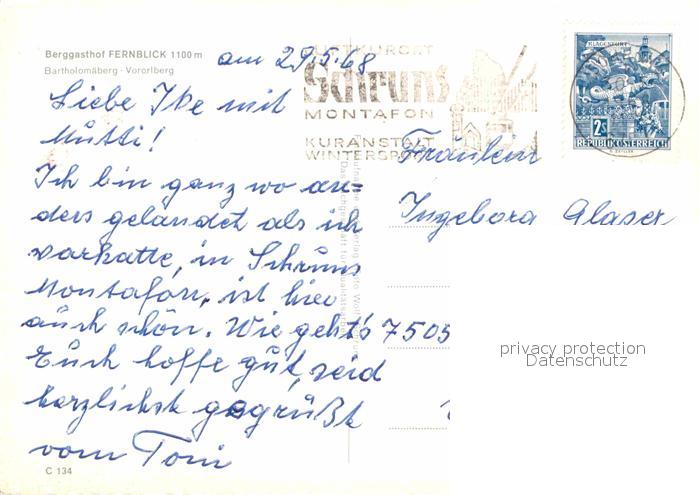 Berggasthof FERNBLICK 1100 m
Bartholomäberg - Vorarlberg
am 29.5.68
LUFTKURORT
Schruns
MONTAFON
KURANSTALT
WINTERSPORT
KLAGENFURT
2S
REPUBLIK ÖSTERREICH
Liebe Ike mit
Mutti!
Ich bin ganz wo an-
ders gelandet als ich
vorhatte, in Schruns
Montafon, ist hier
auch schön. Wie geht's
Euch hoffe gut, seid
herzlichst gegrüßt
vom Toni
C 134
Fräulein
Ingeborg Glaser
7505
privacy protection
Datenschutz